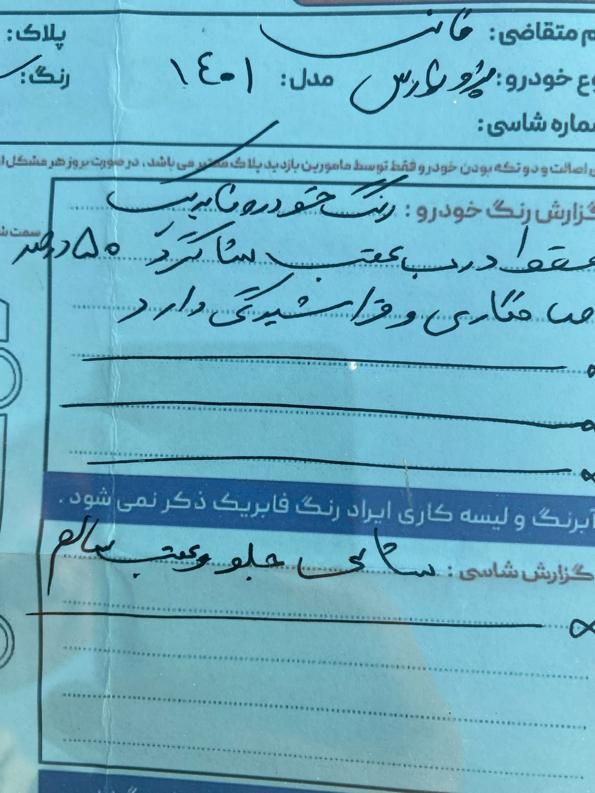 م متقاضی: پلاک:
وع خودرو: پژو پارس مدل: ۱۴۰۱ رنگ:
ماره شاسی:
اصالت و دو تکه بودن خودرو فقط توسط مامورین بازدید پلاک معتبر می باشد، در صورت بروز هر مشکل
گزارش رنگ خودرو: رنگ خودرو فابریک
فقط درب عقب شاگرد ۵۰ درصد
صافکاری و خراشیدگی دارد
آبرنگ و لیسه کاری ایراد رنگ فابریک ذکر نمی شود.
گزارش شاسی: شاسی جلو و عقب سالم